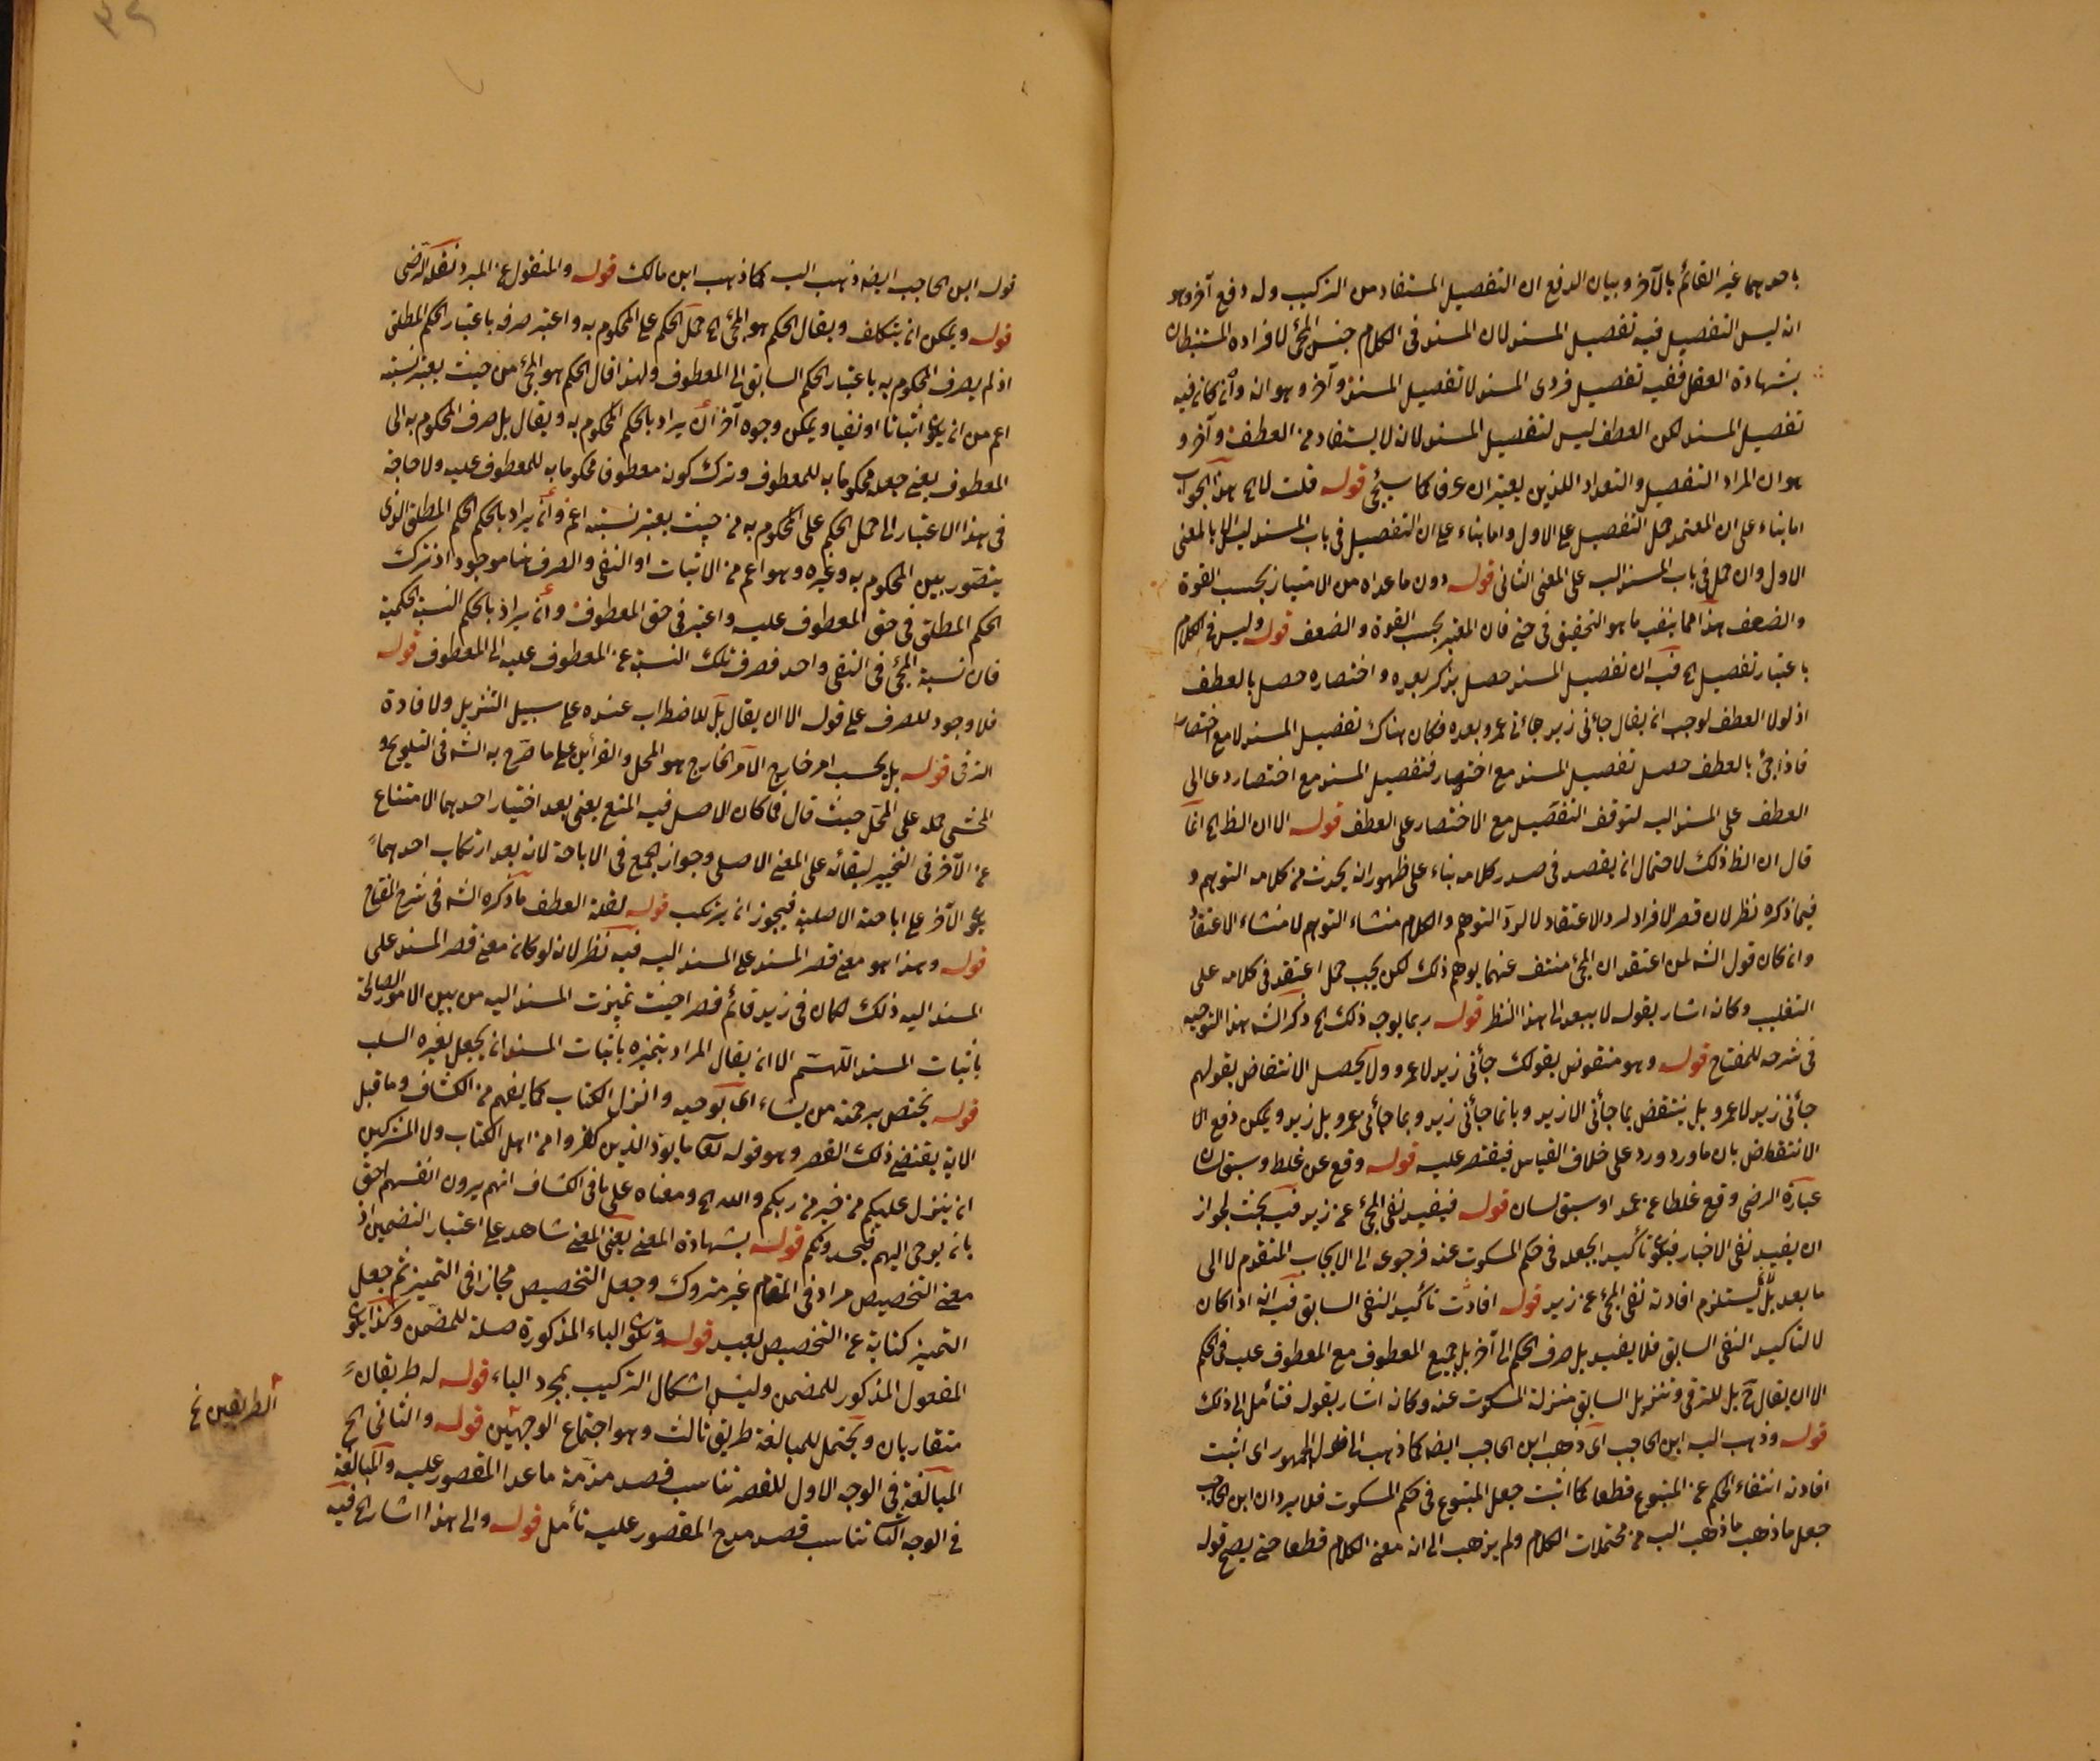 باحدهما غير القائم بالآخر وبيان الدفع ان التفصيل المستفاد من التركيب وله دفع آخر وهو
انه ليس التفصيل فيه تفصيل المسند لان المسند فى الكلام جنس المجئ لا فراده المستنبطان
بشهادة العقل ففيه تفصيل فردى المسند لا تفصيل المسند وآخر وهو انه وان كان فيه
تفصيل المسند لكن العطف ليس لتفصيل المسند لانه لا يستفاد من العطف وآخر و
هو ان المراد التفصيل والتعداد اللذين يعتبران عرفا كما سيجئ قوله قلت لا الخ هذا الجواب
اما بناء على ان المعتمد حمل التفصيل على الاول واما بناء على ان التفصيل فى باب المسند ليس الا بالمعنى
الاول وان حمل فى باب المسند اليه على المعنى الثانى قوله دون ما عداه من الامتياز بحسب القوة
والضعف هذا مما ينفيه ما هو التحقيق فى حتى فان المعتبر بحسب القوة والضعف قوله وليس فى الكلام
باعتبار تفصيل الخ فيه ان تفصيل المسند حصل بذكر بعده واختصاره حصل بالعطف
اذ لولا العطف لوجب ان يقال جائنى زيد جائنى عمرو بعده فكان هناك تفصيل المسند لا مع اختصار
فاذا جئ بالعطف حصل تفصيل المسند مع اختصار فتفصيل المسند مع اختصار دعا الى
العطف على المسند اليه لتوقف التفصيل مع الاختصار على العطف قوله الا ان الظ الخ انما
قال ان الظ ذلك لاحتمال ان يقصد فى صدر كلامه بناء على ظهور انه يحدث من كلامه التوهم و
فيما ذكره نظر لان قصر الافراد لرد الاعتقاد لا لرد التوهم والكلام منشاء التوهم لا منشاء الاعتقاد
وان كان قول الش لمن اعتقد ان المجئ منتف عنهما يوهم ذلك لكن يجب حمل اعتقد فى كلامه على
التغليب وكانه اشار بقوله لا يبعد الى هذا النظر قوله ربما يوجه ذلك الخ ذكر الش هذا التوجيه
فى شرحه للمفتاح قوله وهو منقوض بقولك جائنى زيد لا عمرو ولا يحصل الانتقاض بقولهم
جائنى زيد لا عمرو بل ينتقض بما جائنى الا زيد وبانما جائنى زيد وبما جائنى عمرو بل زيد ويمكن دفع الا
الانتقاض بان ما ورد ورد على خلاف القياس فيقتصر عليه قوله وقع عن غلط وسبق لسان
عبارة الرضى وقع غلطا عن عمد او سبق لسان قوله فيفيد نفى المجئ عن زيد فيه بحث لجواز
ان يفيد نفى الاخبار فيكون تأكيد الجعله فى حكم المسكوت عنه فرجوعه الى الايجاب المتقدم لا الى
ما بعد بل يستلزم افادته نفى المجئ عن زيد قوله افادت تأكيد النفى السابق فيه انه اذا كان
لا لتأكيد النفى السابق فلا يفيد بل صرف الحكم الى آخر بل جميع المعطوف مع المعطوف عليه فى الحكم
الا ان يقال ح بل للترقى وتنزيل السابق منزلة المسكوت عنه وكانه اشار بقوله فتأمل الى ذلك
قوله وذهب اليه ابن الحاجب اى ذهب ابن الحاجب ايضا كما ذهب الى ظهور الجمهور اى اثبت
افادته انتفاء الحكم عن المتبوع قطعا كما اثبت جعل المتبوع فى حكم المسكوت فلا يرد ان ابن الحاجب
جعل ما ذهب ما ذهب اليه من محتملات الكلام ولم يذهب الى انه معنى الكلام قطعا حتى يصح قوله
قوله ابن الحاجب ايضا ذهب اليه كما ذهب ابن مالك قوله والمنقول عن المبرد نقله الرضى
قوله ويمكن ان يتكلف ويقال الحكم هو المجئ الخ حمل الحكم على المحكوم به واعتبر صرفه باعتبار الحكم المطلق
اذ لم يصرف المحكوم به باعتبار الحكم السابق الى المعطوف ولهذا قال الحكم هو المجئ من حيث يعتبر نسبته
اعم من ان يكون اثباتا او نفيا ويمكن وجوه آخر ان يراد بالحكم المحكوم به ويقال بل صرف المحكوم به الى
المعطوف يعنى جعله محكوما به للمعطوف وترك كونه معطوفا محكوما به للمعطوف عليه ولا حاجة
فى هذا الاعتبار الى حمل الحكم على المحكوم به من حيث يعتبر نسبته اعم وان يراد بالحكم الحكم المطلق الذى
يتصور بين المحكوم به وغيره وهو اعم من الاثبات او النفى والصرف هنا موجود اذ ترك
الحكم المطلق فى حق المعطوف عليه واعتبر فى حق المعطوف وان يراد بالحكم النسبة الحكمية
فان نسبة المجئ فى النفى واحد فصرف تلك النسبة عن المعطوف عليه الى المعطوف قوله
فلا وجود للصرف على قوله الا ان يقال بل للاضطراب عنده على سبيل التنزيل ولافادة
الترقى قوله بل بحسب امر خارج الامر الخارج هو المحل والقرائن على ما صرح به الش فى التلويح و
المحشى حمله على المحل حيث قال فما كان الاصل فيه المنع يعنى بعد اختيار احدهما الامتناع
عن الآخر فى التخيير لبقائه على المعنى الاصلى وجواز الجمع فى الاباحة لانه بعد ارتكاب احدهما
يكون الآخر على اباحته الاصلية فيجوز ان يرتكب قوله لقلة العطف ما ذكره الش فى شرح المفتاح
قوله وهذا هو معنى قصر المسند على المسند اليه فيه نظر لانه لو كان معنى قصر المسند على
المسند اليه ذلك لكان فى زيد قائم قصر احيث تميزت المسند اليه من بين الامور الصالحة
باثبات المسند اللهم الا ان يقال المراد بتميزه باثبات المسند ان يجعل لغيره السلب
قوله يختص برحمته من يشاء اى بوحيه وانزل الكتاب كما يفهم من الكشاف وما قبل
الاية يقتضى ذلك القصر وهو قوله تعا ما يود الذين كفروا من اهل الكتاب ولا المشركين
ان ينزل عليكم من خير من ربكم والله الخ ومعناه على ما فى الكشاف انهم يرون انفسهم احق
بان يوحى اليهم فيحسدونكم قوله بشهادة المعنى يعنى المعنى شاهد على اعتبار التضمين اذ
معنى التخصيص مراد فى المقام غير متروك وجعل التخصيص مجازا فى التميز ثم جعل
التميز كناية عن التخصيص بعيد قوله وتكون الباء المذكورة صلة للمضمن وكذا يكون
المفعول المذكور للمضمن وليس اشكال التركيب بمجرد الباء قوله له طريقان
متقاربان ويحتمل للمبالغة طريق ثالث وهو اجتماع الوجهين قوله والثانى الخ
المبالغة فى الوجه الاول للقصر تناسب قصد مذمة ما عدا المقصور عليه والمبالغة
فى الوجه الثا تناسب قصد مدح المقصور عليه تأمل قوله والى هذا اشار الخ فيه
الطريقين نخ